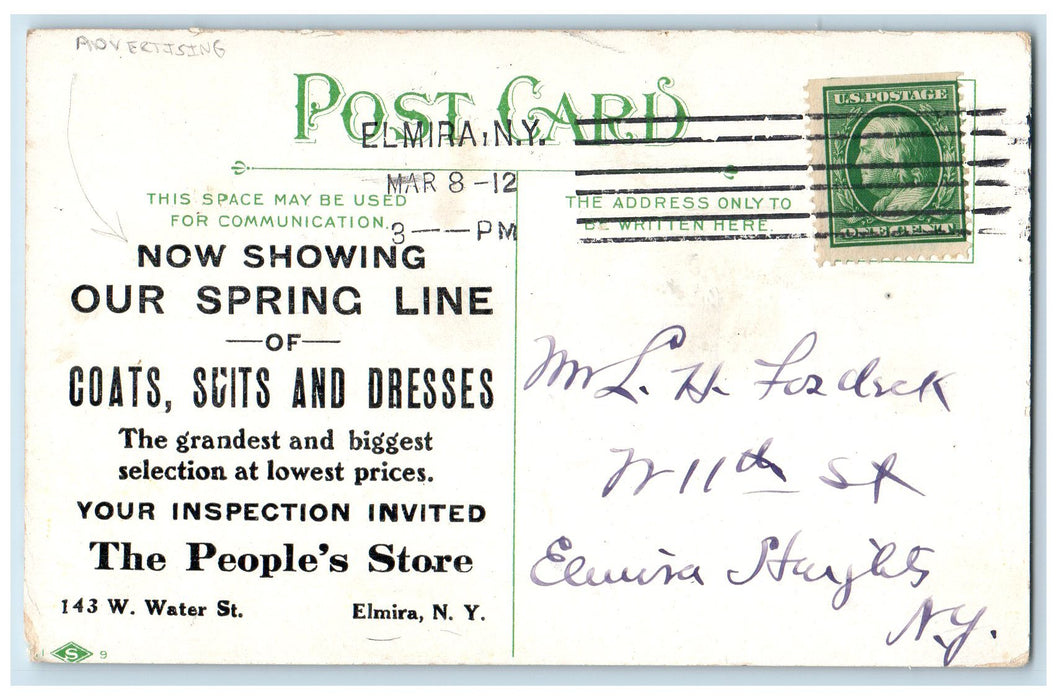 ADVERTISING
POST CARD
ELMIRA, N.Y.
MAR 8 -12
3 — PM
U.S. POSTAGE
ONE CENT
THIS SPACE MAY BE USED
FOR COMMUNICATION.
THE ADDRESS ONLY TO
BE WRITTEN HERE.
NOW SHOWING
OUR SPRING LINE
—OF—
COATS, SUITS AND DRESSES
The grandest and biggest
selection at lowest prices.
YOUR INSPECTION INVITED
The People's Store
143 W. Water St. Elmira, N. Y.
S 9
Mr L. H.
W 11th St
Elmira Heights
N.Y.